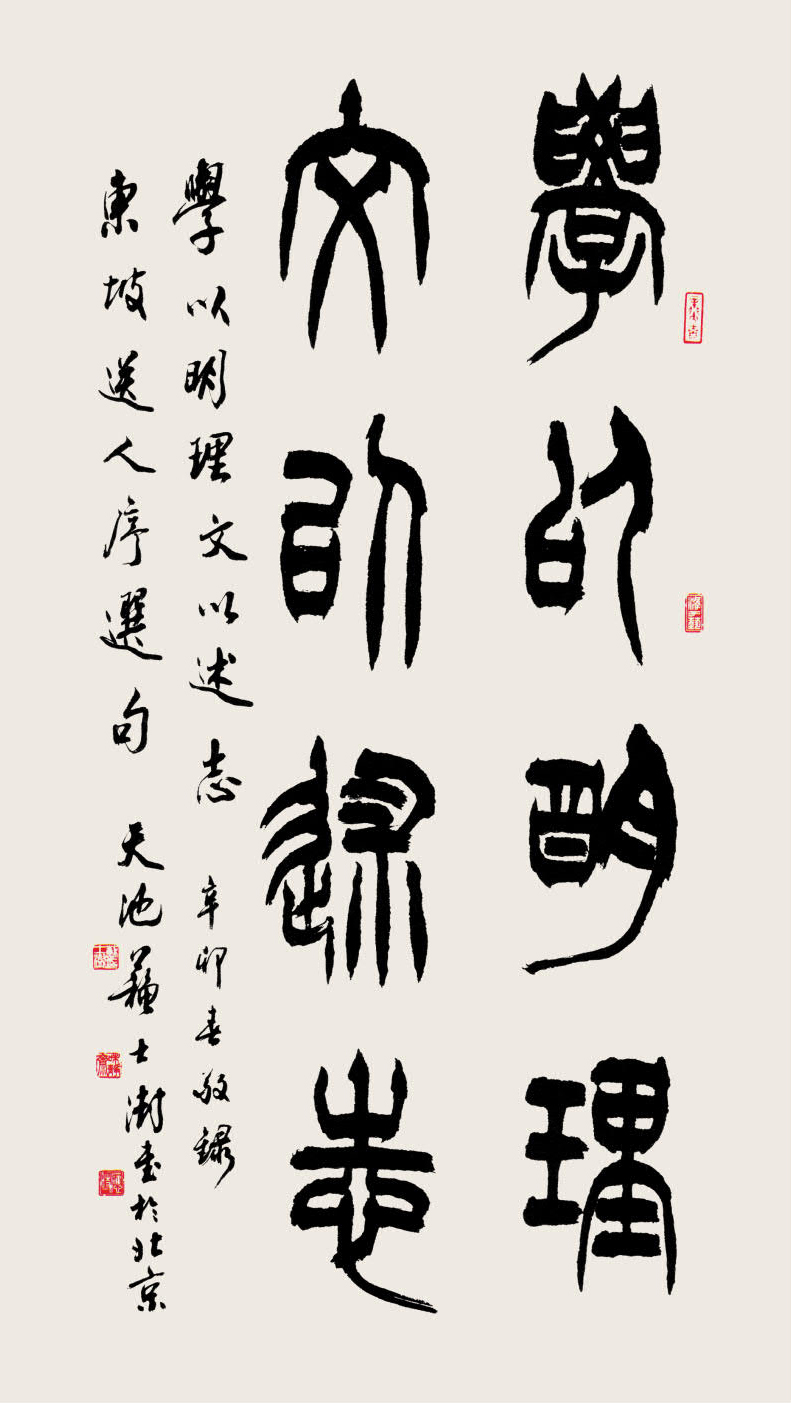 學以明理
文以述志
學以明理文以述志 辛卯春敬錄
東坡送人序選句 天池蘇士澍書於北京